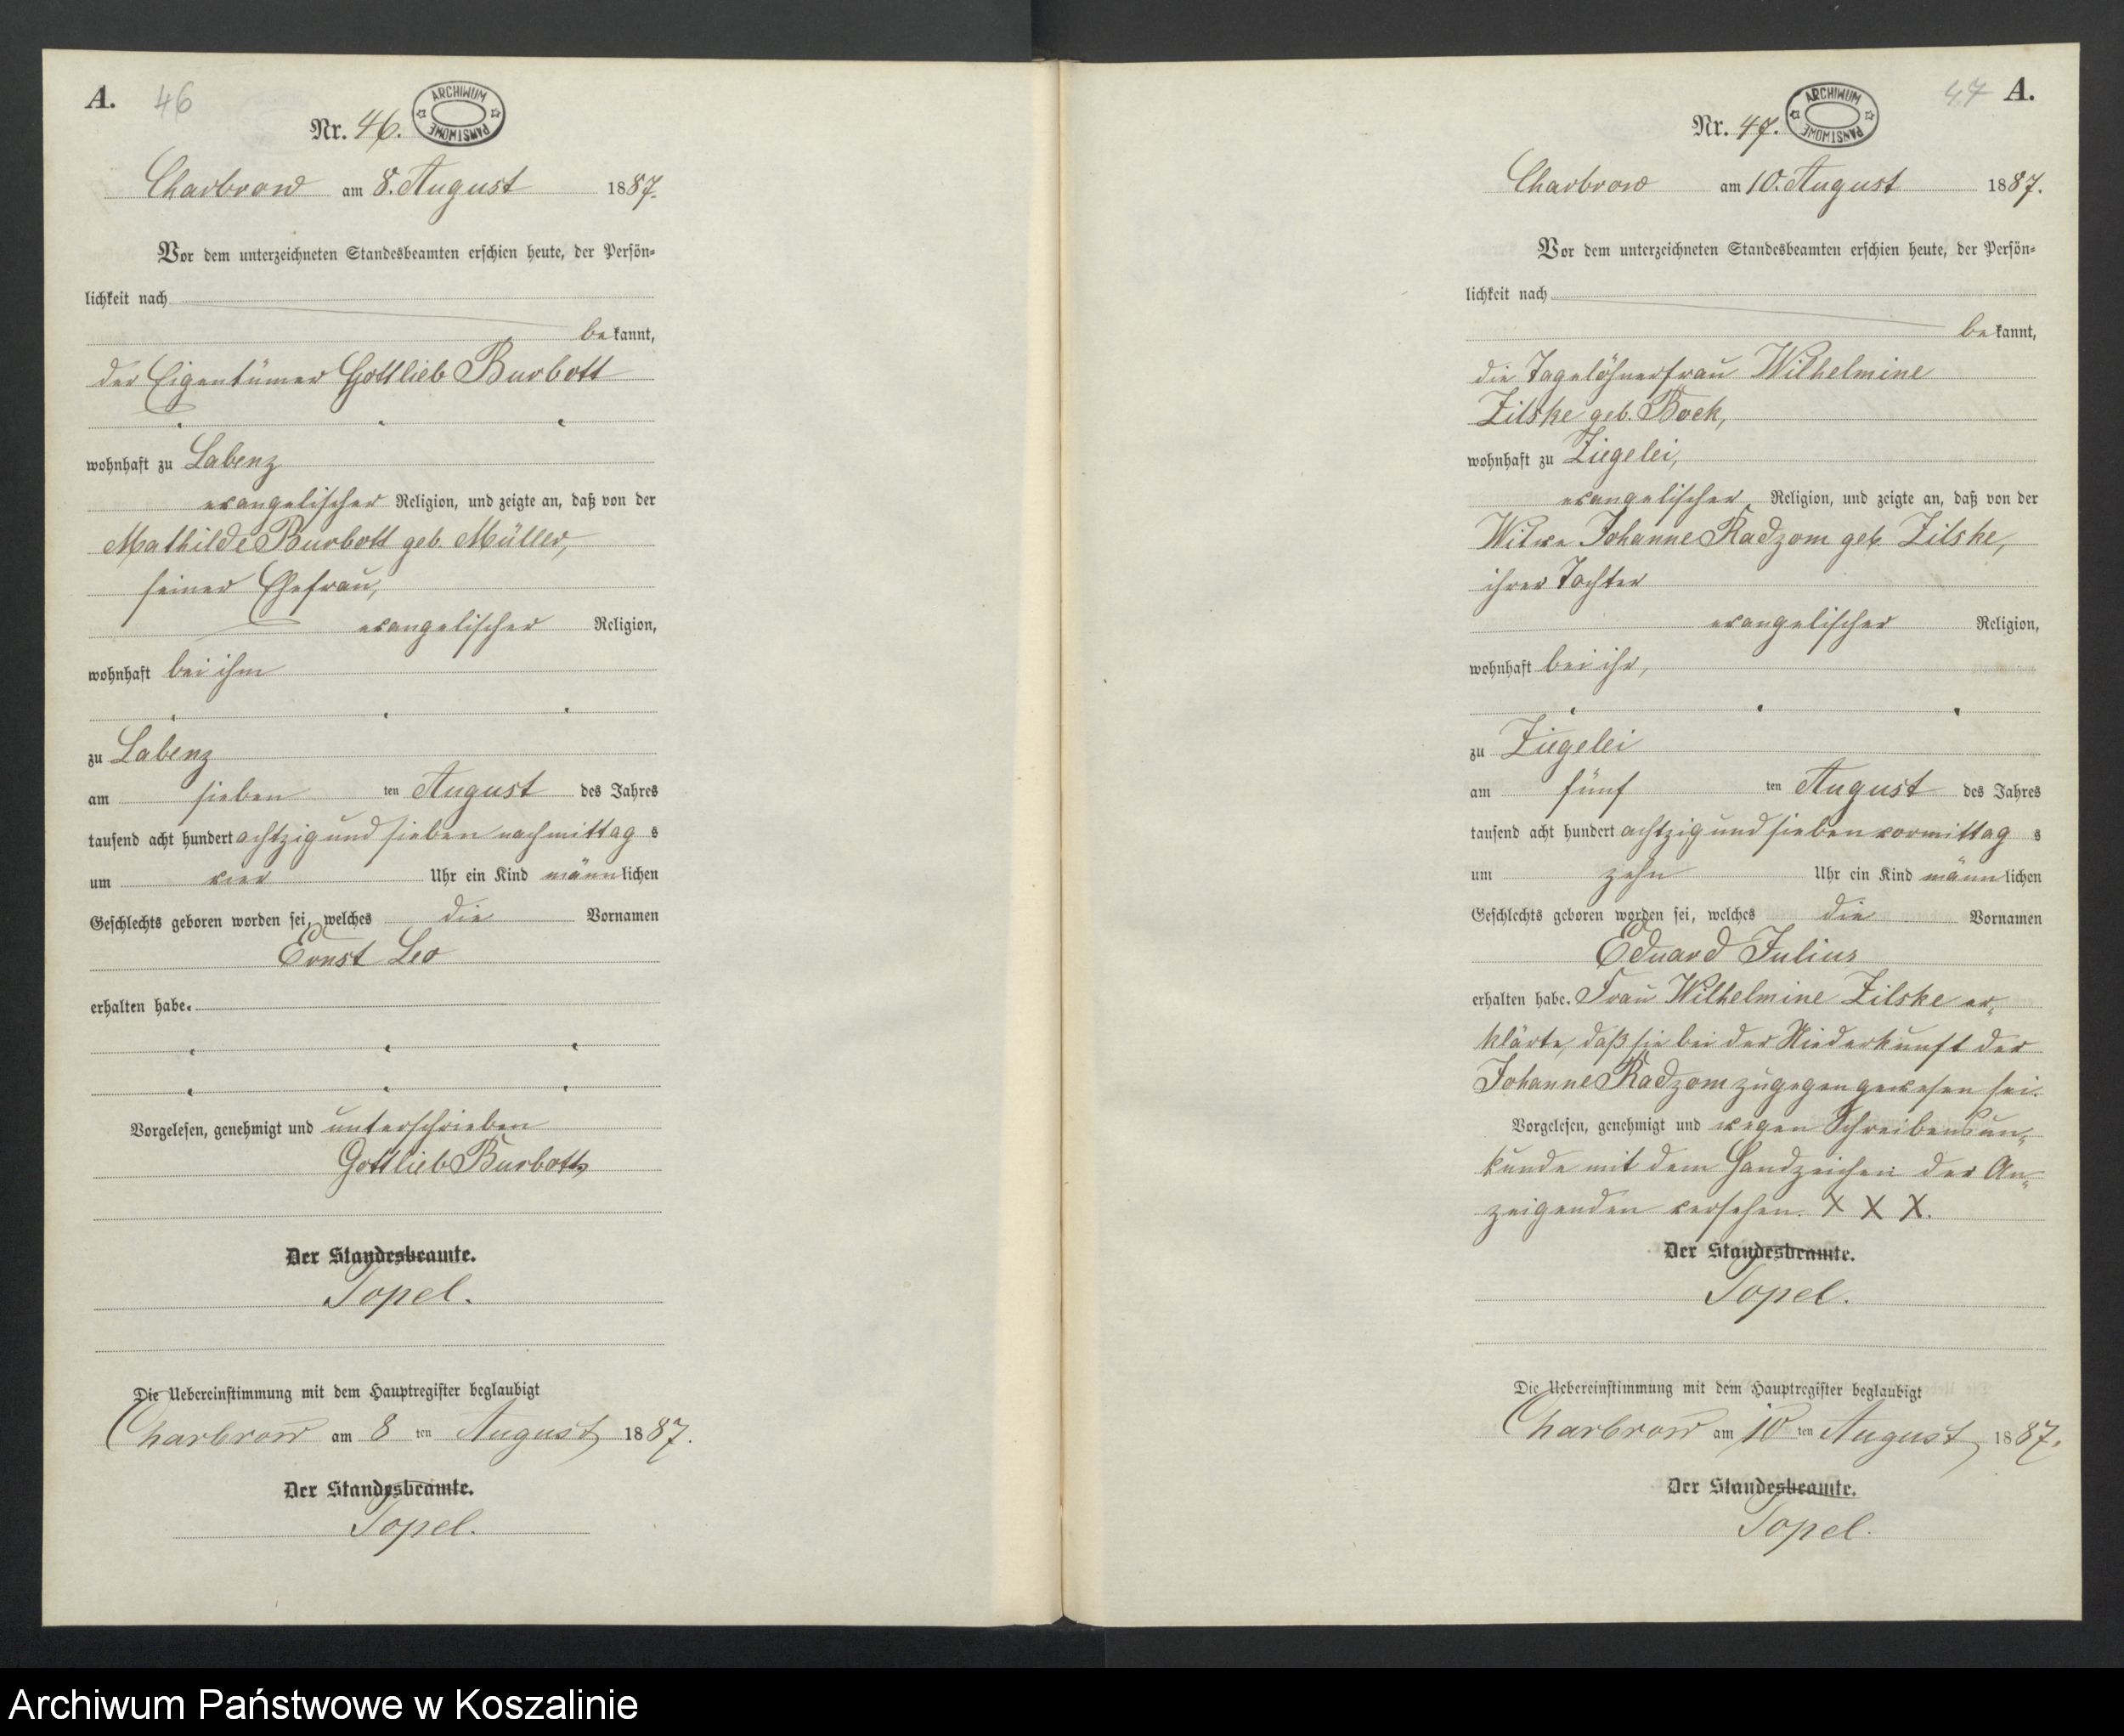 A. 46
Nr. 46.
ARCHIWUM PAŃSTWOWE
Charbrow am 8. August 1887.
Vor dem unterzeichneten Standesbeamten erschien heute, der Persön-
lichkeit nach
bekannt,
der Eigentümer Gottlieb Burbott
wohnhaft zu Labenz
evangelischer Religion, und zeigte an, daß von der
Mathilde Burbott geb. Müller,
seiner Ehefrau,
evangelischer Religion,
wohnhaft bei ihm
zu Labenz
am sieben ten August des Jahres
tausend acht hundert achtzig und sieben nachmittag s
um vier Uhr ein Kind männlichen
Geschlechts geboren worden sei, welches die Vornamen
Ernst Leo
erhalten habe.
Vorgelesen, genehmigt und unterschrieben
Gottlieb Burbott
Der Standesbeamte.
Topel.
Die Uebereinstimmung mit dem Hauptregister beglaubigt
Charbrow am 8 ten August 1887.
Der Standesbeamte.
Topel.
47 A.
Nr. 47.
ARCHIWUM PAŃSTWOWE
Charbrow am 10. August 1887.
Vor dem unterzeichneten Standesbeamten erschien heute, der Persön-
lichkeit nach
bekannt,
die Tagelöhnerfrau Wilhelmine
Zilske geb. Bock,
wohnhaft zu Ziegelei,
evangelischer Religion, und zeigte an, daß von der
Witwe Johanne Radzom geb. Zilske,
ihrer Tochter
evangelischer Religion,
wohnhaft bei ihr,
zu Ziegelei
am fünf ten August des Jahres
tausend acht hundert achtzig und sieben vormittag s
um zehn Uhr ein Kind männlichen
Geschlechts geboren worden sei, welches die Vornamen
Eduard Julius
erhalten habe. Frau Wilhelmine Zilske er-
klärte, daß sie bei der Niederkunft der
Johanne Radzom zugegen gewesen sei.
Vorgelesen, genehmigt und wegen Schreibensun-
kunde mit dem Handzeichen der An-
zeigenden versehen. X X X.
Der Standesbeamte.
Topel.
Die Uebereinstimmung mit dem Hauptregister beglaubigt
Charbrow am 10 ten August 1887.
Der Standesbeamte.
Topel.
Archiwum Państwowe w Koszalinie